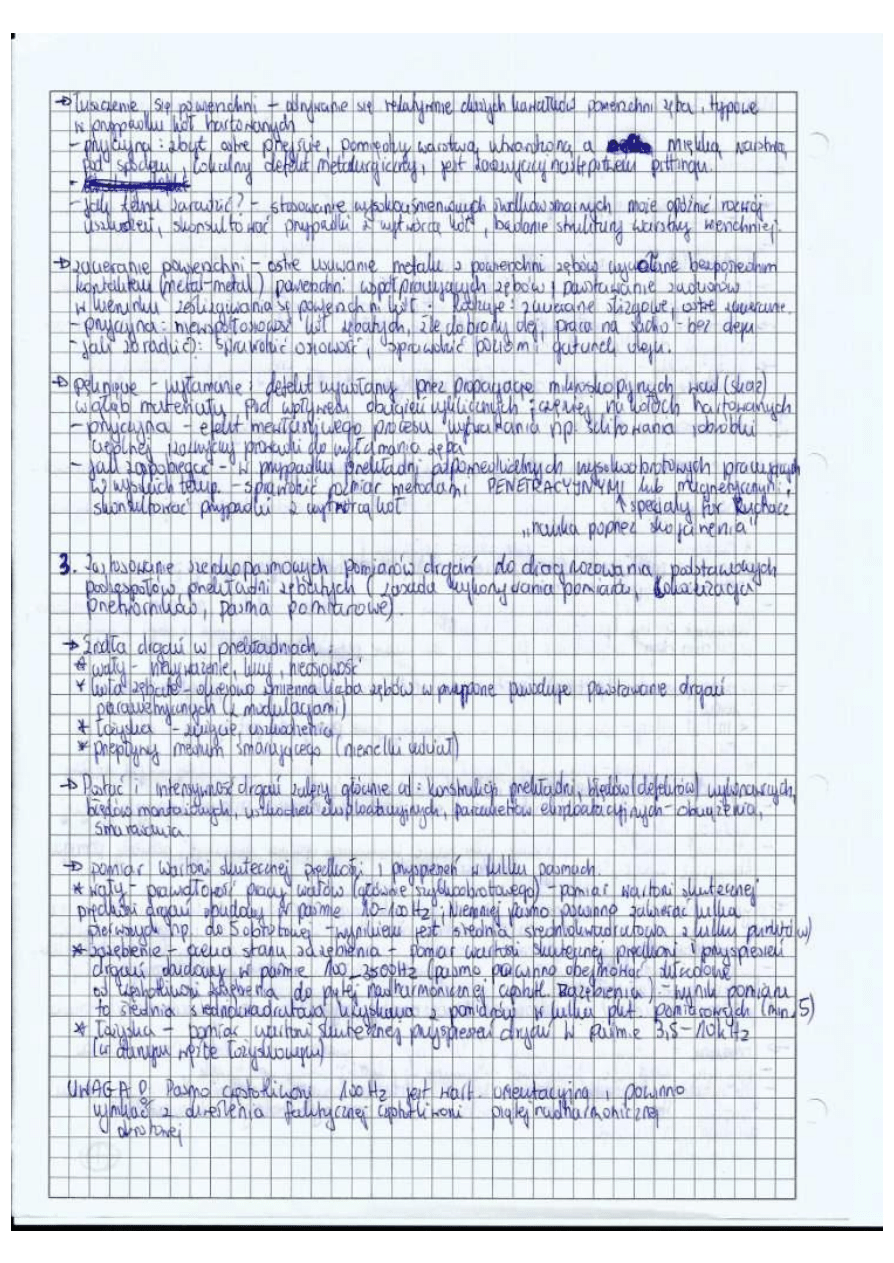 → Łuszczenie się powierzchni – odrywanie się relatywnie dużych kawałków powierzchni zęba, typowe
w przypadku kół hartowanych
– przyczyna: zbyt ostre przejście, pomiędzy warstwą utwardzoną a miękką warstwą
pod spodem, lokalny defekt metalurgiczny, jest następstwem pittingu.
– jak temu zaradzić? – stosowanie wysokociśnieniowych środków smarnych może opóźnić rozwój
uszkodzeń, skonsultować przypadki z wytwórcą kół, badanie struktury warstwy wierzchniej.
→ zacieranie powierzchni – ostre usuwanie metalu z powierzchni zębów wywołane bezpośrednim
kontaktem (metal-metal) powierzchni współpracujących zębów i powstawanie zadziorów
w kierunku ześlizgiwania się powierzchni kół. Rodzaje: zacieranie ślizgowe, ostre zacieranie.
– przyczyna: niewspółosiowość kół zębatych, źle dobrany olej, praca na sucho – bez oleju
– jak zaradzić?: sprawdzić osiowość, sprawdzić poziom i gatunek oleju.
→ pęknięcie – wyłamanie: defekt wywołany przez propagację mikroskopijnych wad (skaz)
w głąb materiału pod wpływem obciążeń cyklicznych: częściej na kołach hartowanych
– przyczyna – efekt niewłaściwego procesu wytwarzania np. szlifowania i obróbki
cieplnej prowadzi do wyłamania zęba
– jak zapobiegać – w przypadku przekładni odpowiedzialnych wysokoobrotowych pracujących
w wysokich temp. – sprawdzić pomiar metodami PENETRACYJNYMI lub magnetycznymi,
skonsultować przypadki z wytwórcą kół ↑ specjały für Ruchacz
„nauka poprzez skojarzenia"
3. Zastosowanie szerokopasmowych pomiarów drgań do diagnozowania podstawowych
podzespołów przekładni zębatych (zasada wykonywania pomiarów, lokalizacja
przetworników, pasma pomiarowe).
→ źródła drgań w przekładniach:
* wały – niewyważenie, luzy, nieosiowość
* koła zębate – okresowo zmienna liczba zębów w przyporze powoduje powstawanie drgań
parametrycznych (z modulacjami)
* łożyska – zużycie, uszkodzenia
* przepływy medium smarującego (niewielki udział)
→ Postać i intensywność drgań zależy głównie od: konstrukcji przekładni, błędów (defektów) wykonawczych,
błędów montażowych, uszkodzeń eksploatacyjnych, parametrów eksploatacyjnych – obciążenia,
smarowania.
→ pomiar wartości skutecznej prędkości i przyspieszeń w kilku pasmach.
* wały – prawidłowość pracy wałów (głównie szybkoobrotowego) – pomiar wartości skutecznej
prędkości drgań obudowy w paśmie 10–100 Hz; Niemniej pasmo powinno zawierać kilka
pierwszych np. do 5 obrotowej – wynikiem jest średnia średniokwadratowa z kilku punktów)
* zazębienie – ocena stanu zazębienia – pomiar wartości skutecznej prędkości i przyspieszeń
drgań obudowy w paśmie 100–3500Hz (pasmo powinno obejmować składowe
od częstotliwości zazębienia do piątej nadharmonicznej częstotl. zazębienia) – wynik pomiaru
to średnia średniokwadratowa uzyskana z pomiarów w kilku pkt. pomiarowych (min. 5)
* łożyska – pomiar wartości skutecznej przyspieszeń drgań w paśmie 3,5–10kHz
(w danym węźle łożyskowym)
UWAGA! Pasmo częstotliwości 100 Hz jest wart. orientacyjną i powinno
wynikać z określenia faktycznej częstotliwości piątej nadharmonicznej
obrotowej